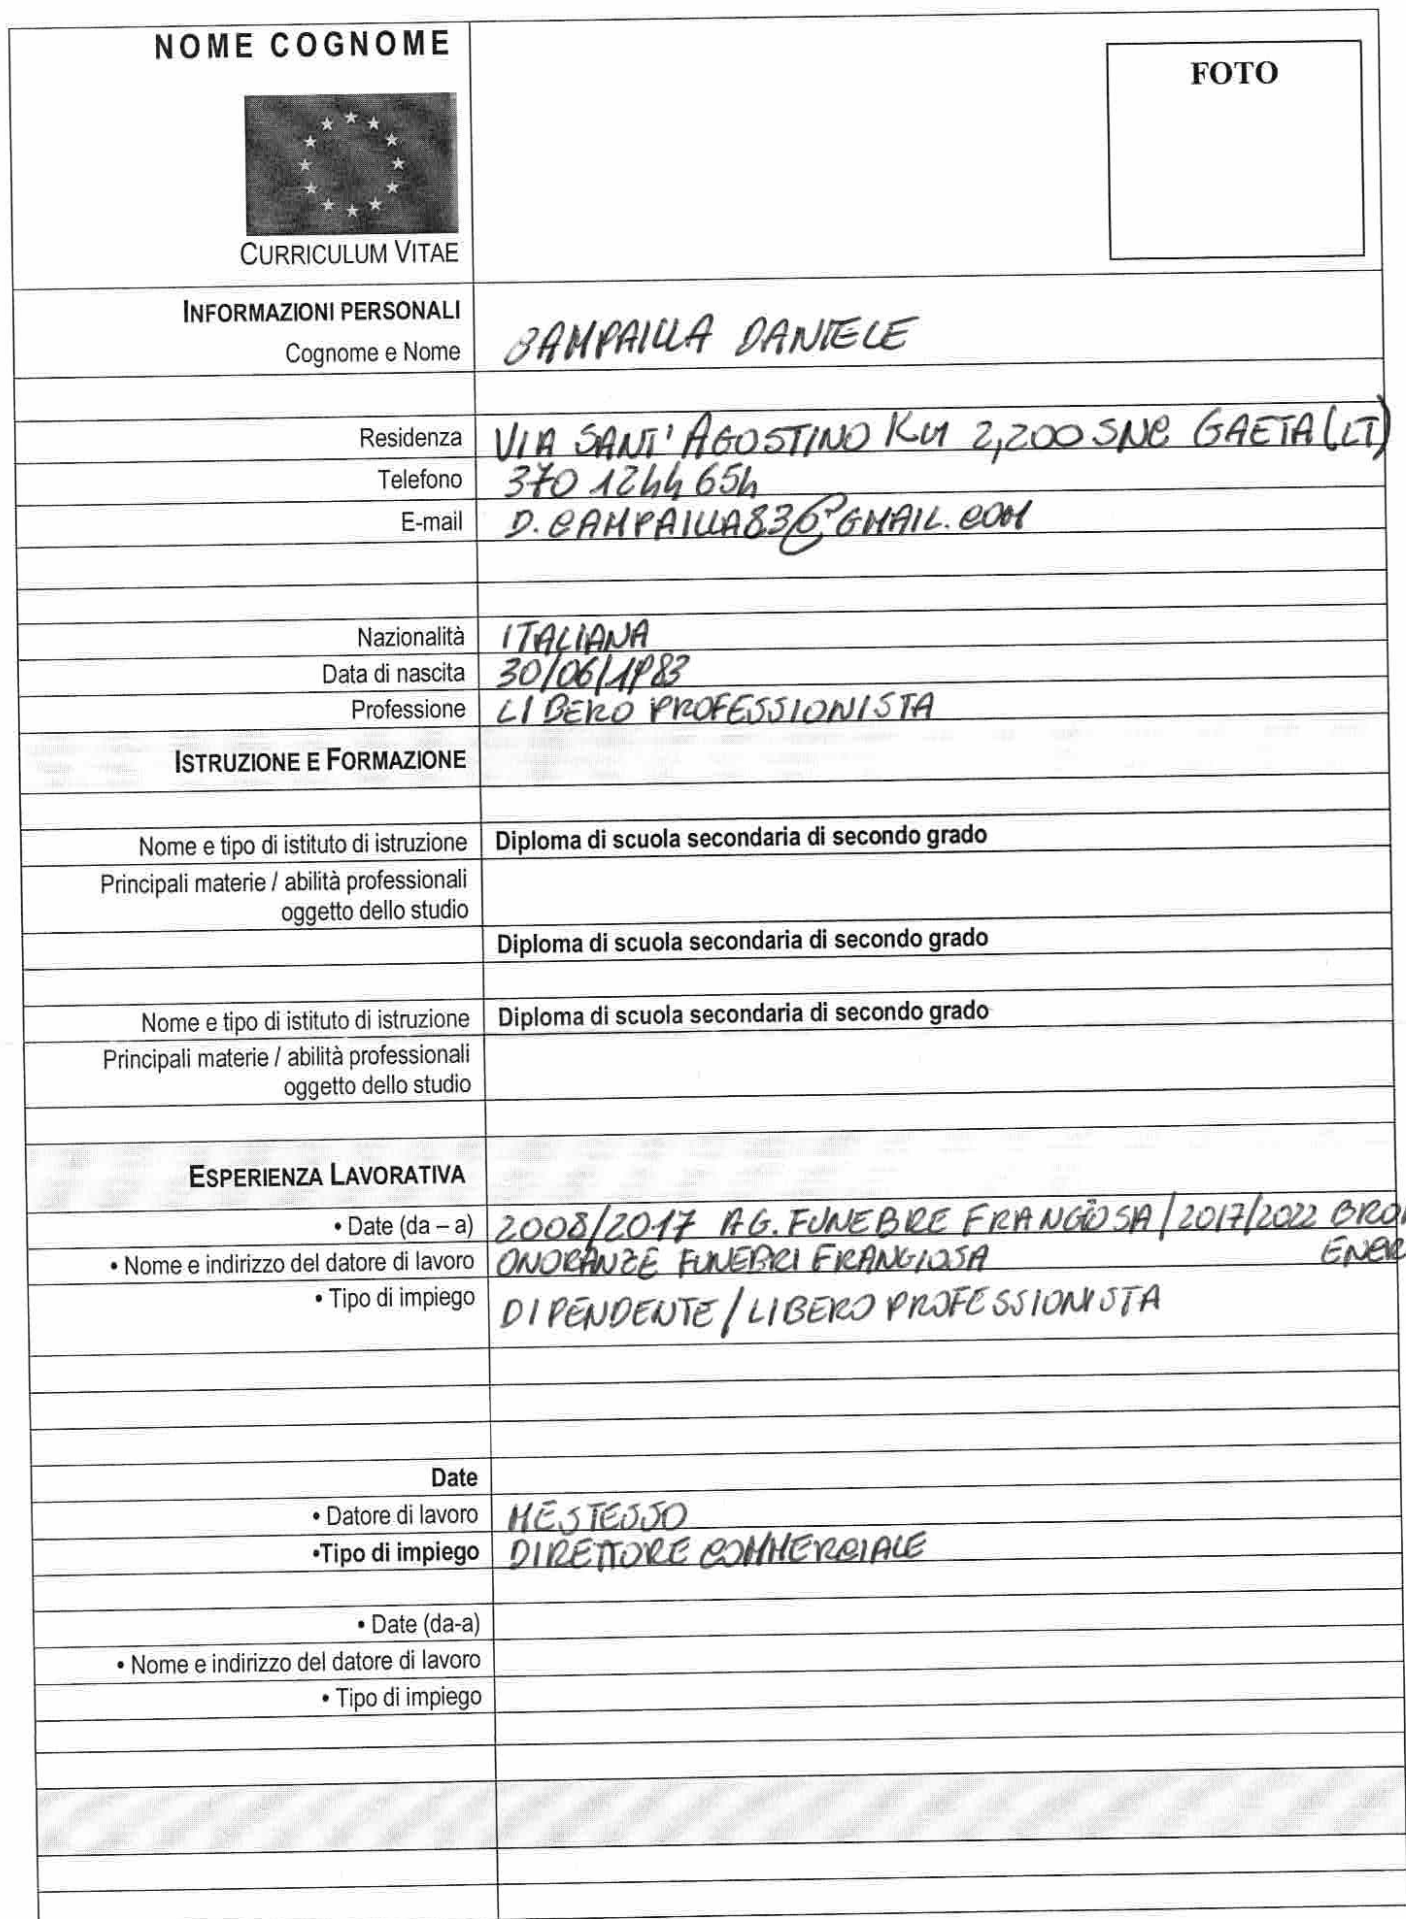 NOME COGNOME
FOTO
CURRICULUM VITAE
INFORMAZIONI PERSONALI
Cognome e Nome CAMPAILLA DANIELE
Residenza VIA SANT' AGOSTINO KM 2,200 SNC GAETA (LT)
Telefono 370 1244 654
E-mail D.CAMPAILLA83@GMAIL.COM
Nazionalità ITALIANA
Data di nascita 30/06/1983
Professione LIBERO PROFESSIONISTA
ISTRUZIONE E FORMAZIONE
Nome e tipo di istituto di istruzione Diploma di scuola secondaria di secondo grado
Principali materie / abilità professionali
oggetto dello studio
Diploma di scuola secondaria di secondo grado
Nome e tipo di istituto di istruzione Diploma di scuola secondaria di secondo grado
Principali materie / abilità professionali
oggetto dello studio
ESPERIENZA LAVORATIVA
• Date (da – a) 2008/2017 AG. FUNEBRE FRANGIOSA / 2017/2022
• Nome e indirizzo del datore di lavoro ONORANZE FUNEBRI FRANGIOSA
• Tipo di impiego DIPENDENTE / LIBERO PROFESSIONISTA
Date
• Datore di lavoro ME STESSO
•Tipo di impiego DIRETTORE COMMERCIALE
• Date (da-a)
• Nome e indirizzo del datore di lavoro
• Tipo di impiego